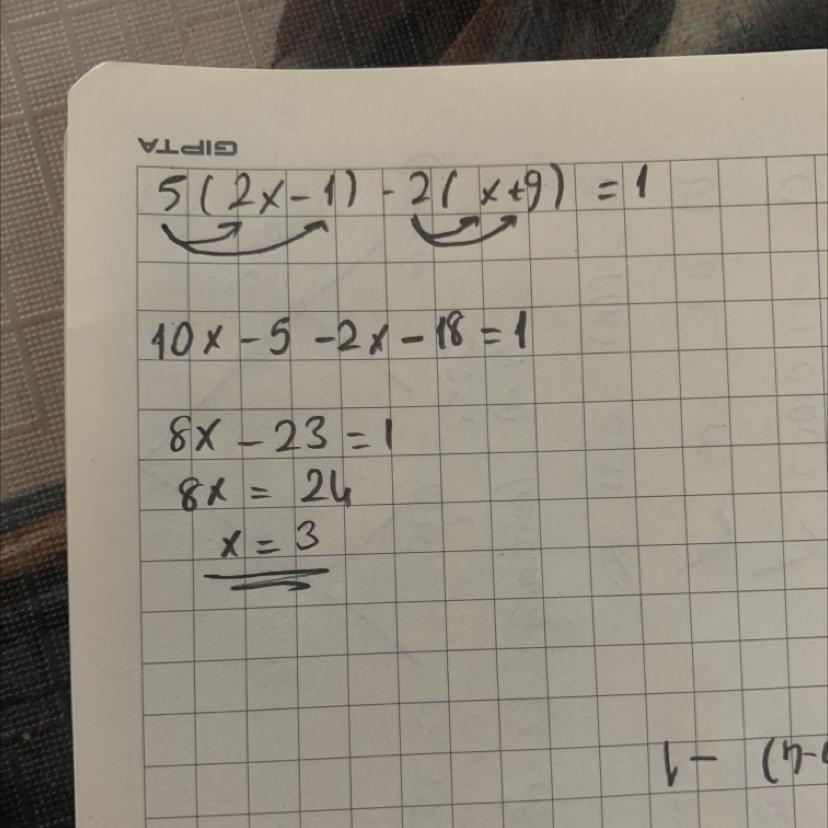 GIPTA
5(2x-1) - 2(x+9) = 1
10x - 5 - 2x - 18 = 1
8x - 23 = 1
8x = 24
x = 3